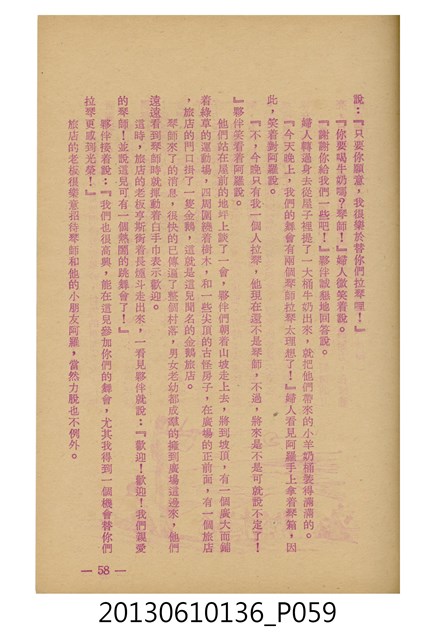 說：『只要你願意，我很樂於替你們拉琴喔！』
『你要喝牛奶嗎？琴師！』婦人微笑着說。
『謝謝你給我們一些吧！』夥伴誠懇地回答說。
婦人轉過身去從屋子裡提了一大桶牛奶出來，就把他們帶來的小羊奶桶裝得滿滿的。
『今天晚上，我們的舞會有兩個琴師拉琴太理想了！』婦人看見阿羅手上拿着琴箱，因
此，笑着對阿羅說。
『不，今晚只有我一個人拉琴，他現在還不是琴師，不過，將來是不是可就說不定了！
』夥伴笑看着阿羅說。
他們站在屋前的地坪上談了一會，夥伴們朝着山坡走上去，將到坡頂，有一個廣大而鋪
着綠草的運動場，四周圍繞着樹木，和一些尖頂的古怪房子，在廣場的正前面，有一個旅店
，旅店的門口掛了一隻金鵝，這就是這兒聞名的金鵝旅店。
琴師來了的消息，很快的已傳遍了整個村落，男女老幼都成羣的擁到廣場這邊來，他們
遠遠看到琴師時就揮動着白手巾表示歡迎。
這時，旅店的老板亨斯銜着長煙斗走出來，一看見夥伴就說：『歡迎！歡迎！我們親愛
的琴師！並說這兒可有一個熱鬧的跳舞會了！』
夥伴接着說：『我們也很高興，能在這兒參加你們的舞會，尤其我得到一個機會替你們
拉琴更感到光榮！』
旅店的老板很樂意招待琴師和他的小朋友阿羅，當然力脫也不例外。
— 58 —
20130610136_P059